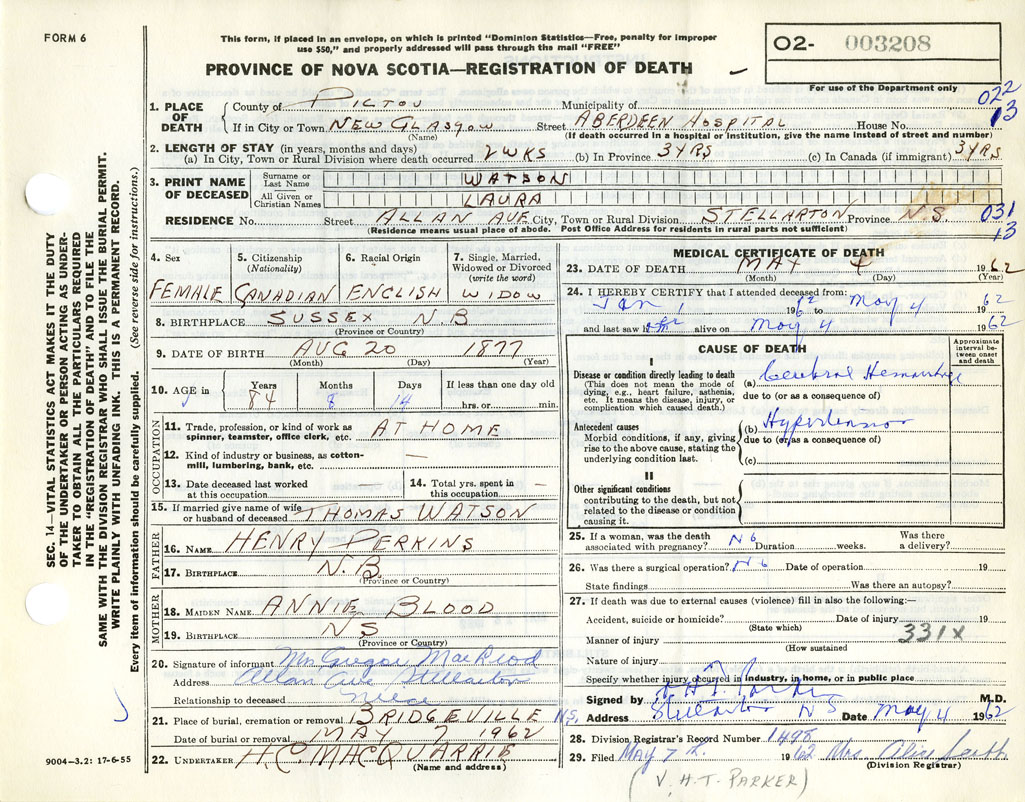 FORM 6
This form, if placed in an envelope, on which is printed "Dominion Statistics—Free, penalty for improper
use $50," and properly addressed will pass through the mail "FREE"
PROVINCE OF NOVA SCOTIA—REGISTRATION OF DEATH
O2- 003208
For use of the Department only
022
13
1. PLACE OF DEATH
County of PICTOU Municipality of
If in City or Town NEW GLASGOW Street ABERDEEN HOSPITAL House No.
(Name) (If death occurred in a hospital or institution, give the name instead of street and number)
2. LENGTH OF STAY (in years, months and days)
(a) In City, Town or Rural Division where death occurred 2 WKS (b) In Province 3 YRS (c) In Canada (if immigrant) 3 YRS
3. PRINT NAME OF DECEASED
Surname or Last Name WATSON
All Given or Christian Names LAURA
RESIDENCE No. Street ALLAN AVE City, Town or Rural Division STELLARTON Province N.S. 031
(Residence means usual place of abode. Post Office Address for residents in rural parts not sufficient) 13
4. Sex FEMALE
5. Citizenship (Nationality) CANADIAN
6. Racial Origin ENGLISH
7. Single, Married, Widowed or Divorced (write the word) WIDOW
8. BIRTHPLACE SUSSEX N.B
(Province or Country)
9. DATE OF BIRTH AUG 20 1877
(Month) (Day) (Year)
10. AGE in Years 84 Months 8 Days 14 If less than one day old hrs. or min.
OCCUPATION
11. Trade, profession, or kind of work as
spinner, teamster, office clerk, etc. AT HOME
12. Kind of industry or business, as cotton-
mill, lumbering, bank, etc. —
13. Date deceased last worked
at this occupation —
14. Total yrs. spent in
this occupation —
15. If married give name of wife
or husband of deceased THOMAS WATSON
FATHER
16. NAME HENRY PERKINS
17. BIRTHPLACE N.B.
(Province or Country)
MOTHER
18. MAIDEN NAME ANNIE BLOOD
19. BIRTHPLACE NS
(Province or Country)
20. Signature of informant Mrs Gregor MacLeod
Address Allan Ave Stellarton
Relationship to deceased Niece
21. Place of burial, cremation or removal BRIDGEVILLE N.S.
Date of burial or removal MAY 7 1962
22. UNDERTAKER H.C. MACQUARRIE
(Name and address)
MEDICAL CERTIFICATE OF DEATH
23. DATE OF DEATH MAY 4 1962
(Month) (Day) (Year)
24. I HEREBY CERTIFY that I attended deceased from:
Jan 1 1962 to May 4 62
and last saw her alive on May 4 1962
CAUSE OF DEATH
Approximate interval be-tween onset and death
I
Disease or condition directly leading to death
(This does not mean the mode of
dying, e.g., heart failure, asthenia,
etc. It means the disease, injury, or
complication which caused death.)
(a) Cerebral Hemorrhage
due to (or as a consequence of)
Antecedent causes
Morbid conditions, if any, giving
rise to the above cause, stating the
underlying condition last.
(b) Hypertension
due to (or as a consequence of)
(c)
II
Other significant conditions
contributing to the death, but not
related to the disease or condition
causing it.
25. If a woman, was the death
associated with pregnancy? No Duration weeks. Was there
a delivery?
26. Was there a surgical operation? No Date of operation 19
State findings Was there an autopsy?
27. If death was due to external causes (violence) fill in also the following:—
Accident, suicide or homicide? Date of injury 19
(State which)
331X
Manner of injury
(How sustained
Nature of injury
Specify whether injury occurred in industry, in home, or in public place
Signed by V. H. T. Parker M.D.
Address Stellarton N S Date May 4 1962
28. Division Registrar's Record Number 1498
29. Filed May 7th 1962 Mrs. Alice
(Division Registrar)
(V. H. T. PARKER)
SEC. 14—VITAL STATISTICS ACT MAKES IT THE DUTY
OF THE UNDERTAKER OR PERSON ACTING AS UNDER-
TAKER TO OBTAIN ALL THE PARTICULARS REQUIRED
IN THE "REGISTRATION OF DEATH" AND TO FILE THE
SAME WITH THE DIVISION REGISTRAR WHO SHALL ISSUE THE BURIAL PERMIT.
WRITE PLAINLY WITH UNFADING INK. THIS IS A PERMANENT RECORD.
Every item of information should be carefully supplied. (See reverse side for instructions.)
9004—3.2: 17-6-55